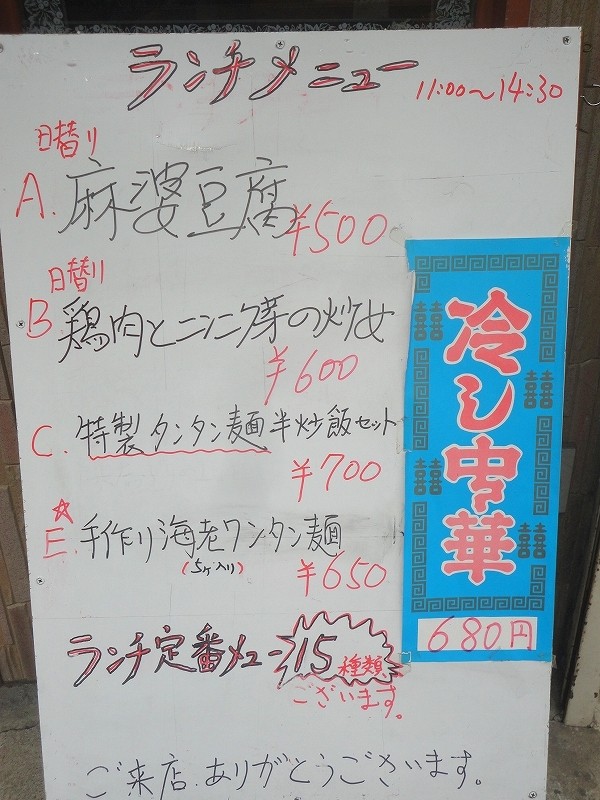 ランチメニュー
11:00〜14:30
日替り
A. 麻婆豆腐
¥500
日替り
B. 鶏肉とニンニク芽の炒め
¥600
C. 特製タンタン麺半炒飯セット
¥700
☆
E. 手作り海老ワンタン麺
(5ヶ入り)
¥650
ランチ定番メニュー15種類
ございます。
ご来店、ありがとうございます。
冷し中華
680円